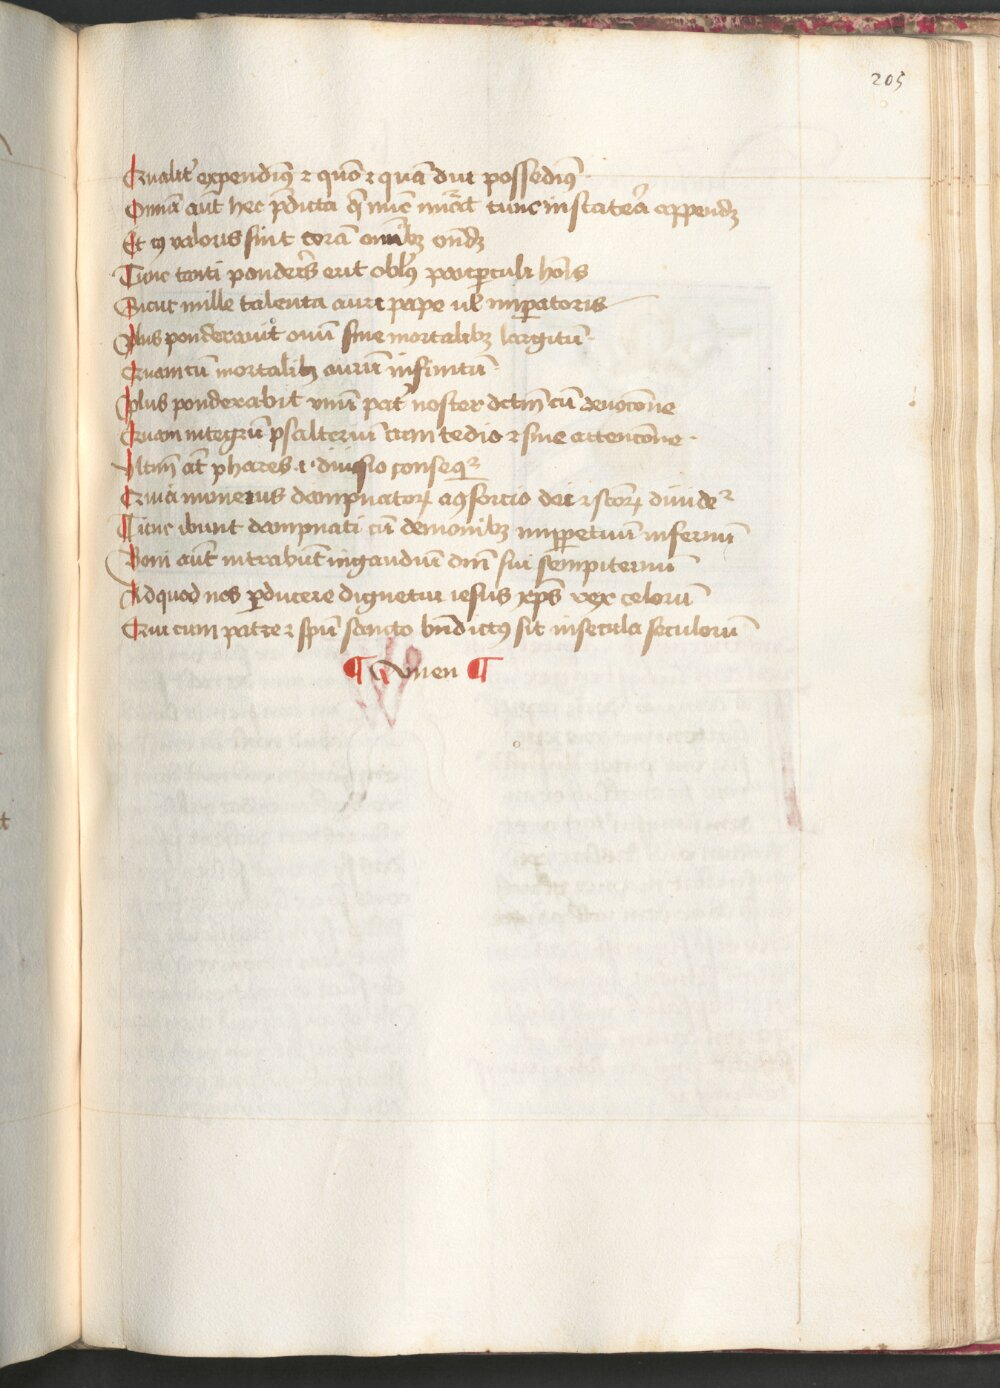 205
Qualit᷑ expendim⁹ ⁊ quō ⁊ quā diu possedim⁹
Omīa aūt hec p̄dicta q̄ nūc nūāt tunc in statea᷑ appendꝫ
Et cꝰ valoris sint corā omībꝫ ondꝫ
Tunc tanti ponderis erit obl⁹ paup̄culi hoīs
Sicut mille talenta auri pape ul imp̄atoris
Plus ponderauit ouū sine mortalibꝫ largitū
Quam cū mortalibꝫ aurū infinitū
Plus ponderabit vnū pat᷑ noster dctm̄ cū deuocōne
Quam integrū psalteriū cum tedio ⁊ sine attencōne
Vltim̄ āt phares .i. diuisio conseqr̄
Quia numerus dampnatoꝝ a ꝯsorcio dei ⁊ scōꝝ diuider̄
Tunc ibunt dampnati cū demonibꝫ in p̄petuum infernū
Boni aūt intrabūt in gaudiū dn̄i sui sempiternū
Ad quod nos p̄ducere dignetur iesus xp̄s rex celorū
Qui cum patre ⁊ sp̄u sancto bn̄dictꝰ sit in secula seculorū
¶ Amen ¶